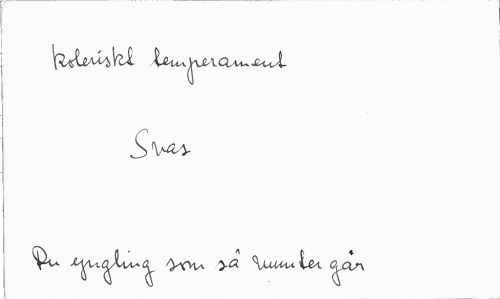 koleriskt temperament
Svas
Du yngling som så munter går